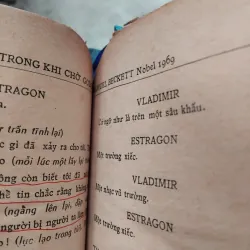 TRONG KHI CHỜ
ESTRAGON
trấn tĩnh lại)
gì đã xảy ra cho tô
(mỗi lúc một lấy lại
ông còn biết tôi đã
thể tin chắc rằng
(ngẩng lên lại, đáp
người bị người ta
(lục lạo trong
BECKETT Nobel 1969
VLADIMIR
ngỡ như là trên một sân khấu.
ESTRAGON
Một trường xiếc.
VLADIMIR
Một nhạc vũ trường.
ESTRAGON
Một trường xiếc.